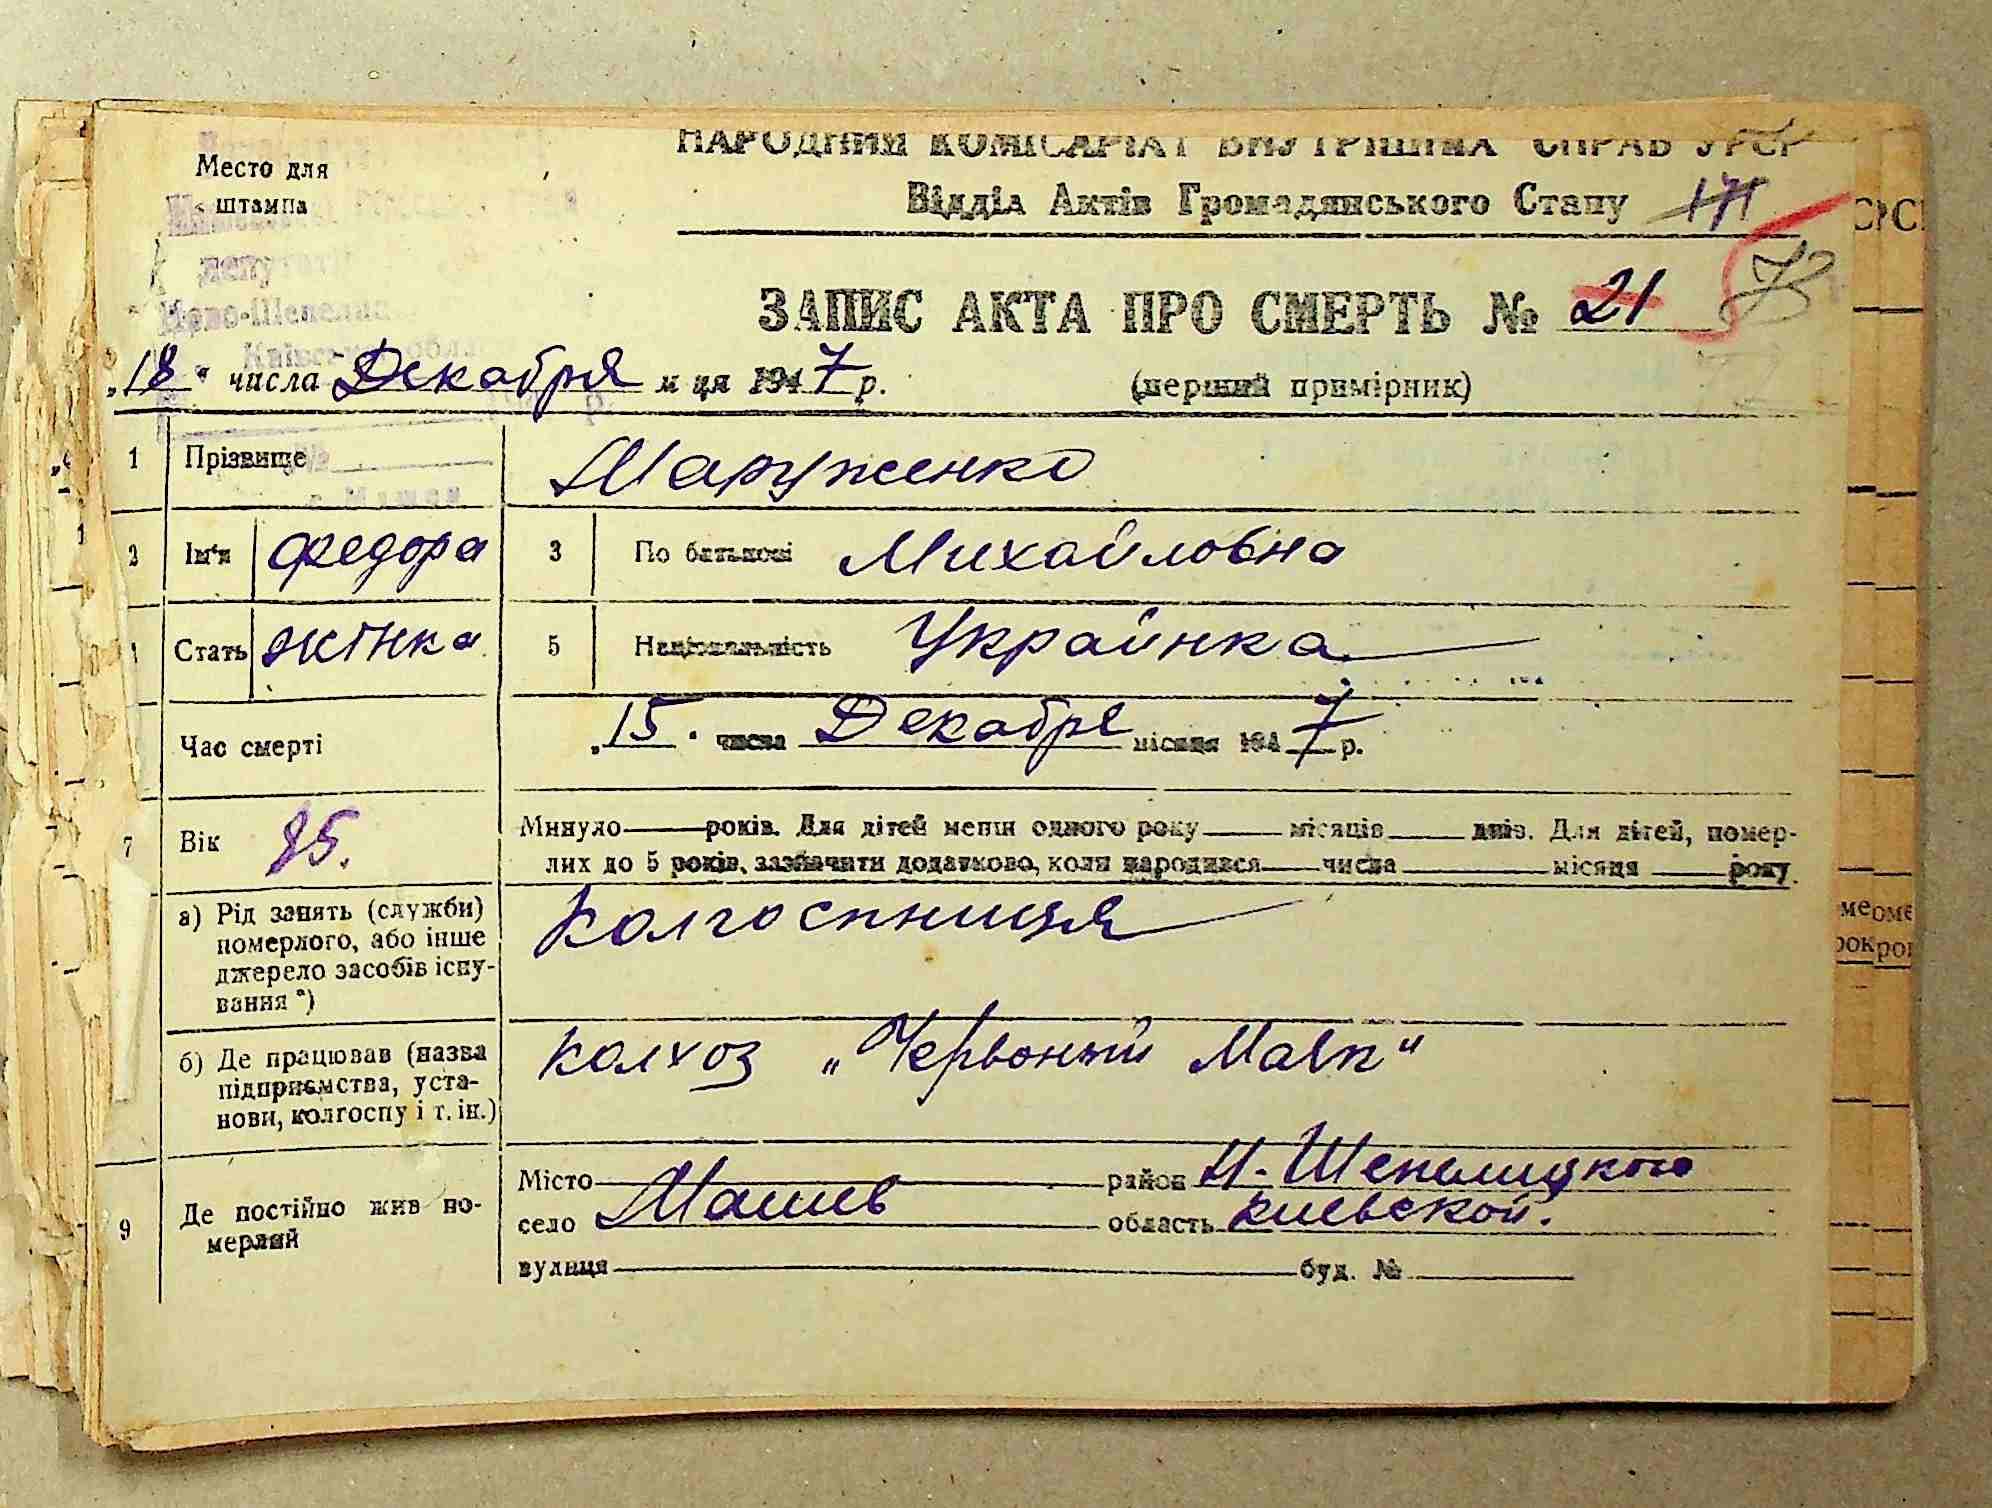 НАРОДНИЙ КОМІСАРІАТ ВНУТРІШНІХ СПРАВ УРСР
Место для
штампа
Відділ Актів Громадянського Стану
ЗАПИС АКТА ПРО СМЕРТЬ № 21 73
Київської обл
„18“ числа Декабря м ця 1947 р.
(перший примірник)
1 Прізвище Маруженко
2 Ім'я Федора 3 По батькові Михайловна
Стать жінка 5 Національність Украинка
Час смерті „15. числа Декабря місяця 1947 р.
7 Вік 85. Минуло — років. Для дітей менш одного року — місяців — днів. Для дітей, помер-
лих до 5 років, зазначити додатково, коли народився — числа — місяця — року
а) Рід занять (служби)
померлого, або інше
джерело засобів існу-
вання *)
Колгоспниця
б) Де працював (назва
підприємства, уста-
нови, колгоспу і т. ін.)
колхоз „Червоний Маяк“
9 Де постійно жив по-
мерлий
Місто район Н-Шепелицкого
село Машев область Киевской.
вулиця буд. №